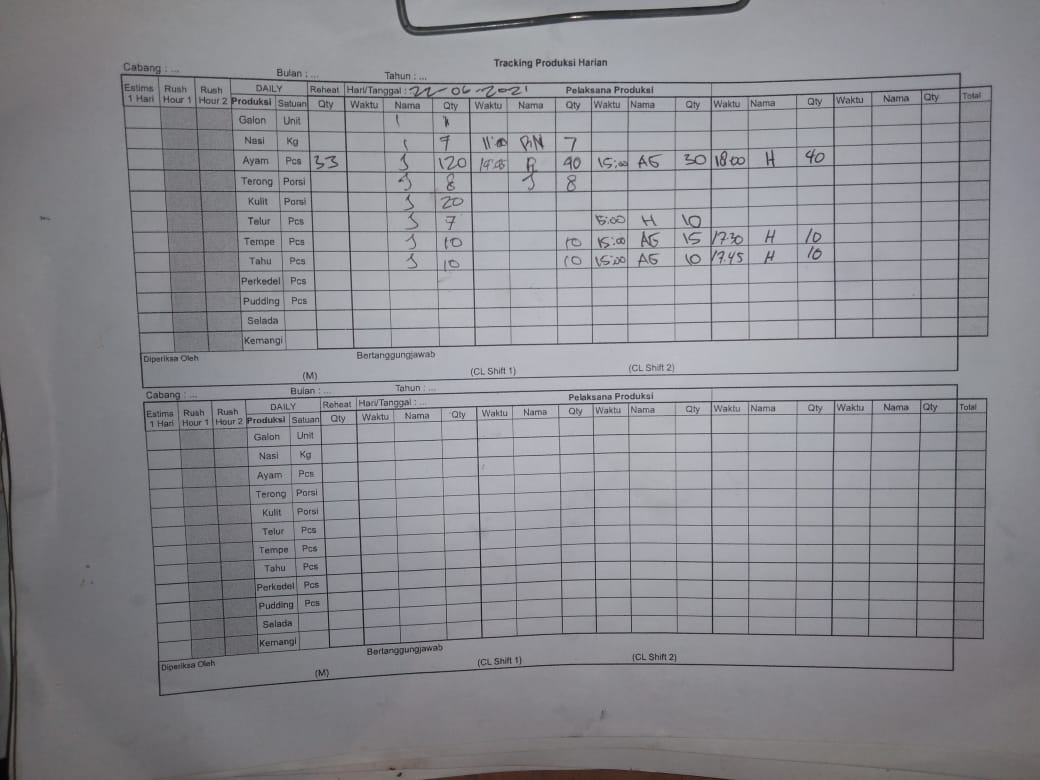 Tracking Produksi Harian
Cabang : ... Bulan : ... Tahun : ...
Estims 1 Hari Rush Hour 1 Rush Hour 2 DAILY Reheat Hari/Tanggal : 22-06-2021 Pelaksana Produksi
Produksi Satuan Qty Waktu Nama Qty Waktu Nama Qty Waktu Nama Qty Waktu Nama Qty Waktu Nama Qty Total
Galon Unit
Nasi Kg 7 11:00 RN 7
Ayam Pcs 33 J 120 R 90 15:00 AG 30 18:00 H 40
Terong Porsi J 8 J 8
Kulit Porsi J 20
Telur Pcs J 7 15:00 H 10
Tempe Pcs J 10 10 15:00 AG 15 17.30 H 10
Tahu Pcs J 10 10 15:00 AG 10 17.45 H 10
Perkedel Pcs
Pudding Pcs
Selada
Kemangi
Diperiksa Oleh Bertanggungjawab
(M) (CL Shift 1) (CL Shift 2)
Cabang : ... Bulan : ... Tahun : ...
Estims 1 Hari Rush Hour 1 Rush Hour 2 DAILY Reheat Hari/Tanggal : ... Pelaksana Produksi
Produksi Satuan Qty Waktu Nama Qty Waktu Nama Qty Waktu Nama Qty Waktu Nama Qty Waktu Nama Qty Total
Galon Unit
Nasi Kg
Ayam Pcs
Terong Porsi
Kulit Porsi
Telur Pcs
Tempe Pcs
Tahu Pcs
Perkedel Pcs
Pudding Pcs
Selada
Kemangi
Diperiksa Oleh Bertanggungjawab
(M) (CL Shift 1) (CL Shift 2)